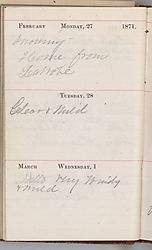 FEBRUARY MONDAY, 27 1871.
Snowing
Home from
TUESDAY, 28
Clear & Mild
MARCH WEDNESDAY, 1
Very Windy
& Mild